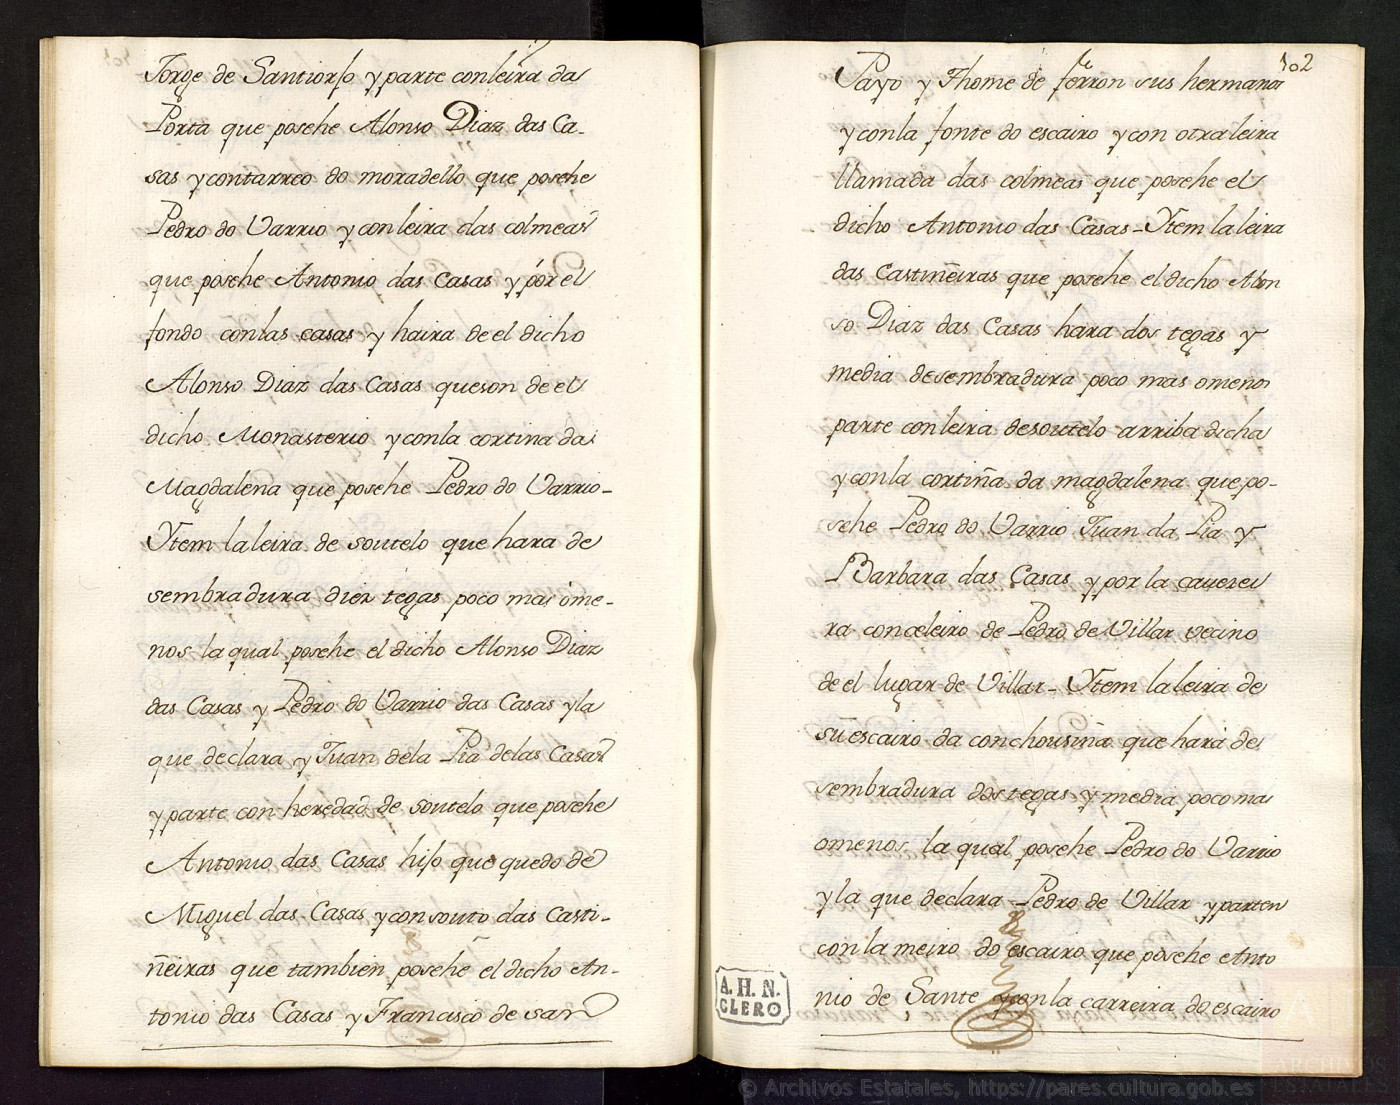 Jorge de Santiorso y parte con leira da
Porta que posehe Alonso Diaz das Ca-
sas y con tarreo do moradello que posehe
Pedro do Varrio y con leira das colmeas
que posehe Antonio das Casas y por el
fondo con las casas y haira de el dicho
Alonso Diaz das Casas que son de el
dicho Monasterio y con la cortina da
Magdalena que posehe Pedro do Varrio-
Ytem la leira de soutelo que hara de
sembradura diez tegas poco mas ó me-
nos la qual posehe el dicho Alonso Diaz
das Casas y Pedro do Varrio das Casas y la
que declara y Juan de la Pia de las Casas
y parte con heredad de soutelo que posehe
Antonio das Casas hijo que quedo de
Miguel das Casas y con souto das Casti-
ñeiras que tambien posehe el dicho An-
tonio das Casas y Francisco de san
102
Payo y Thome de ferron sus hermanos
y con la fonte do escairo y con otra leira
llamada das colmeas que posehe el
dicho Antonio das Casas - Ytem la leira
das Castiñeiras que posehe el dicho Alon
so Diaz das Casas hara dos tegas y
media de sembradura poco mas o menos
parte con leira de soutelo arriba dicha
y con la cortiña da magdalena que po-
sehe Pedro do Varrio Juan da Pia y
Barbara das Casas y por la cauezei
ra con celeiro de Pedro de Villar vecino
de el lugar de Villar - Ytem la leira de
sũ escairo da conchousiña que hará de
sembradura dos tegas y media poco ma
omenos la qual posehe Pedro do Varrio
y la que declara Pedro de Villar y parten
con lameiro do escairo que posehe Anto
nio de Sante y con la carreira do escairo
A. H. N.
CLERO
© Archivos Estatales, https://pares.cultura.gob.es
ARCHIVOS
ESTATALES